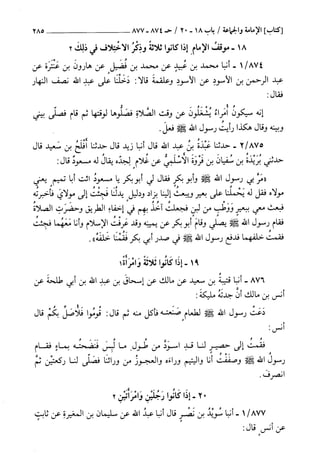 [كتاب] الإمامة والجماعة / باب ١٨ - ٢٠ / حـ ٨٧٤ - ٨٧٧ ٢٨٥
١٨ - موقف الإمام إذا كانوا ثلاثة وذكر الاختلاف في ذلك ؟
١/٨٧٤ - أنبا محمد بن عبيد عن محمد بن فضيل عن هارون بن عنترة عن
عبد الرحمن بن الأسود عن الأسود وعلقمة قالا: دخلنا على عبد الله نصف النهار
فقال:
إنه سيكون أمراء يشغلون عن وقت الصلاة فصلوها لوقتها ثم قام فصلى بيني
وبينه وقال هكذا رأيت رسول الله ﷺ فعل.
٢/٨٧٥ - حدثنا عبدة بن عبد الله قال أنبا زيد قال حدثنا أفلح بن سعيد قال
حدثني بريدة بن سفيان بن فروة الأسلمي عن غلام لجده يقال له مسعود قال:
«مر بي رسول الله ﷺ وأبو بكر فقال لي أبو بكر يا مسعود ائت أبا تميم يعني
مولاه فقل له يحملنا على بعير ويبعث إلينا بزاد ودليل يدلنا فجئت إلى مولاي فأخبرته
فبعث معي ببعير ووطب من لبن فجعلت آخذ بهم في إخفاء الطريق وحضرت الصلاة
فقام رسول الله ﷺ يصلي وقام أبو بكر عن يمينه وقد عرفت الإسلام وأنا معهما فجئت
فقمت خلفهما فدفع رسول الله ﷺ في صدر أبي بكر فقمنا خلفه».
١٩ - إذا كانوا ثلاثة وامرأة؛
٨٧٦ - أنبا قتيبة بن سعيد عن مالك عن إسحاق بن عبد الله بن أبي طلحة عن
أنس بن مالك أن جدته مليكة:
دعت رسول الله ﷺ لطعام صنعته فأكل منه ثم قال: قوموا فلأصل بكم قال
أنس:
فقمت إلى حصير لنا قد اسود من طول ما لبس فنضحته بماء فقام
رسول الله ﷺ وصففت أنا واليتيم وراءه والعجوز من ورائنا فصلى لنا ركعتين ثم
انصرف.
٢٠ - إذا كانوا رجلين وامرأتين ؟
١/٨٧٧ - أنبا سويد بن نصر قال أنبا عبد الله عن سليمان بن المغيرة عن ثابت
عن أنس قال: